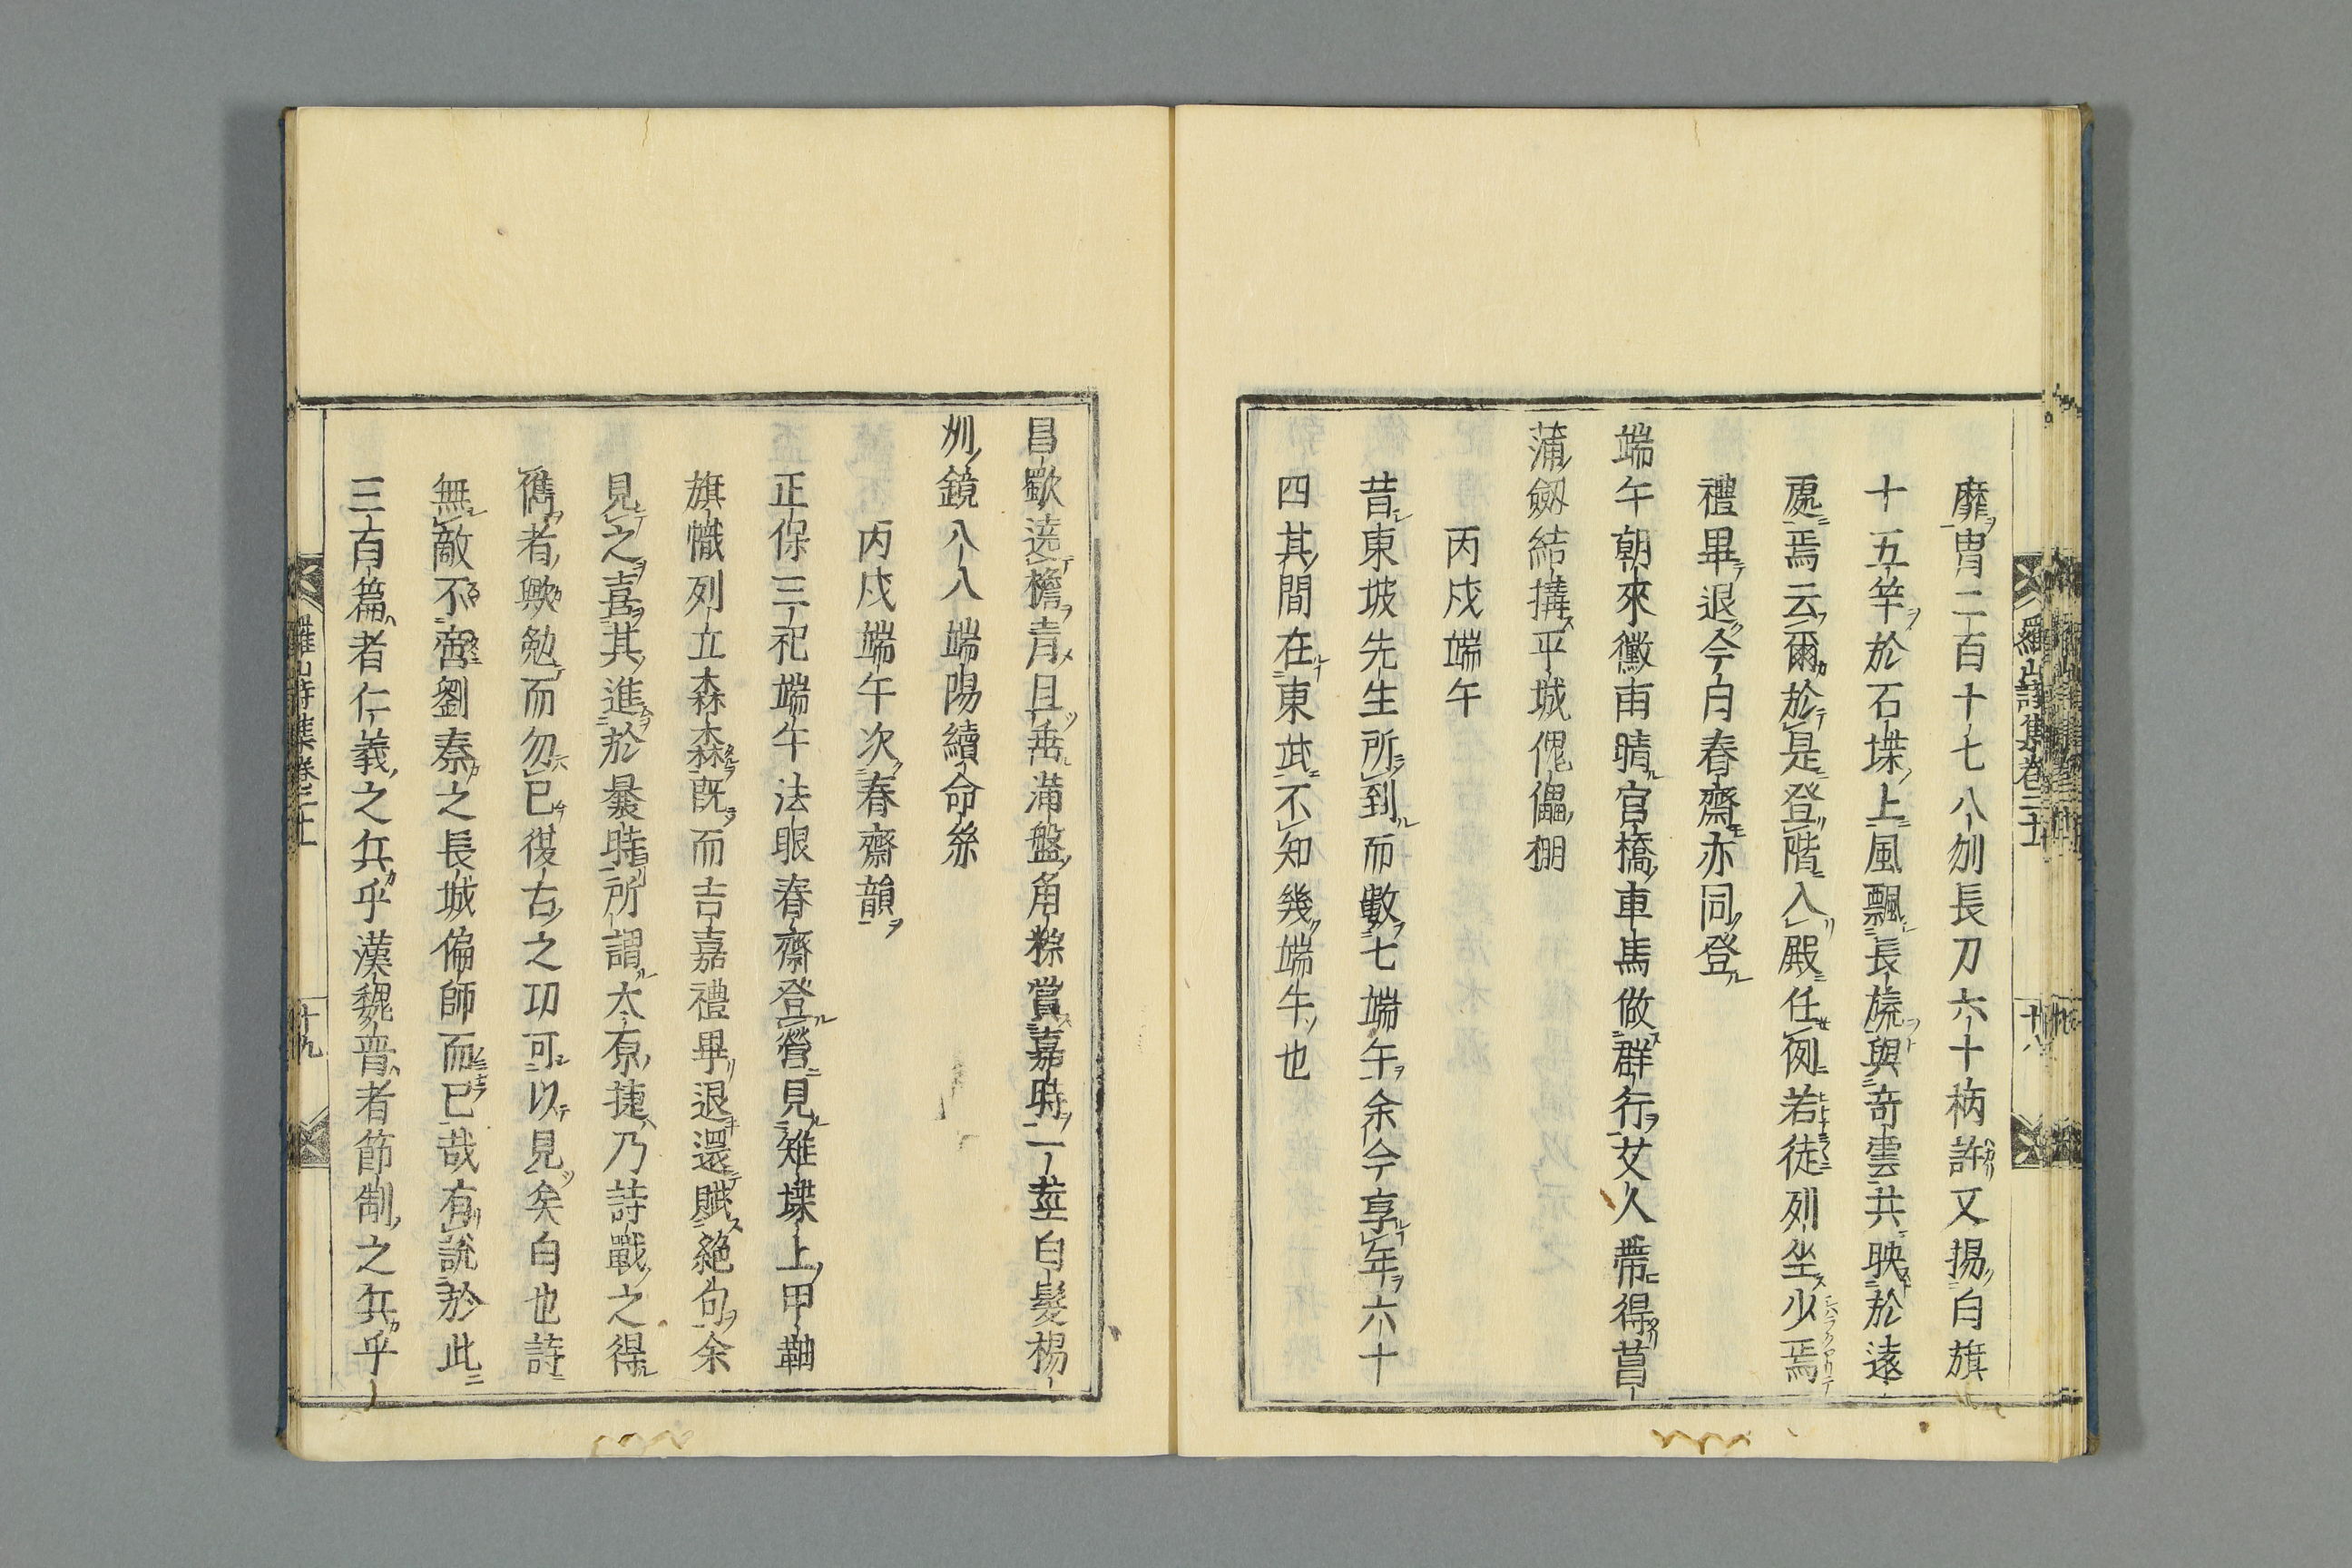 靡冑二百十七八刎長刀六十柄許又揚白旗
十五竿於石堞上風飄長旒與奇雲共映於遠
處焉云爾於是登階入殿任例若徒列坐少焉
禮畢退今白春齋亦同登
端午朝來黴雨晴官橋車馬做群行艾人帶得菖
蒲劔結搆平城傀儡棚
丙戌端午
昔東坡先生所到而數七端午余今享年六十
四其間在東武不知幾端午也
昌歜遶檐青且垂滿盤角粽賞嘉時一莖白髮楊
州鏡八八端陽續命絲
丙戌端午次春齋韻
正保三祀端午法眼春齋登營見雉堞上甲鞴
旗幟列立森森既而吉嘉禮畢退還賦絕句余
見之喜其進於曩時所謂太原捷乃詩戰之得
儁者歟勉而勿已復古之功可以見矣白也詩
無敵不啻劉秦之長城偏師而已哉有說於此
三百篇者仁義之兵乎漢魏晋者節制之兵乎
羅山詩集卷三十
十九